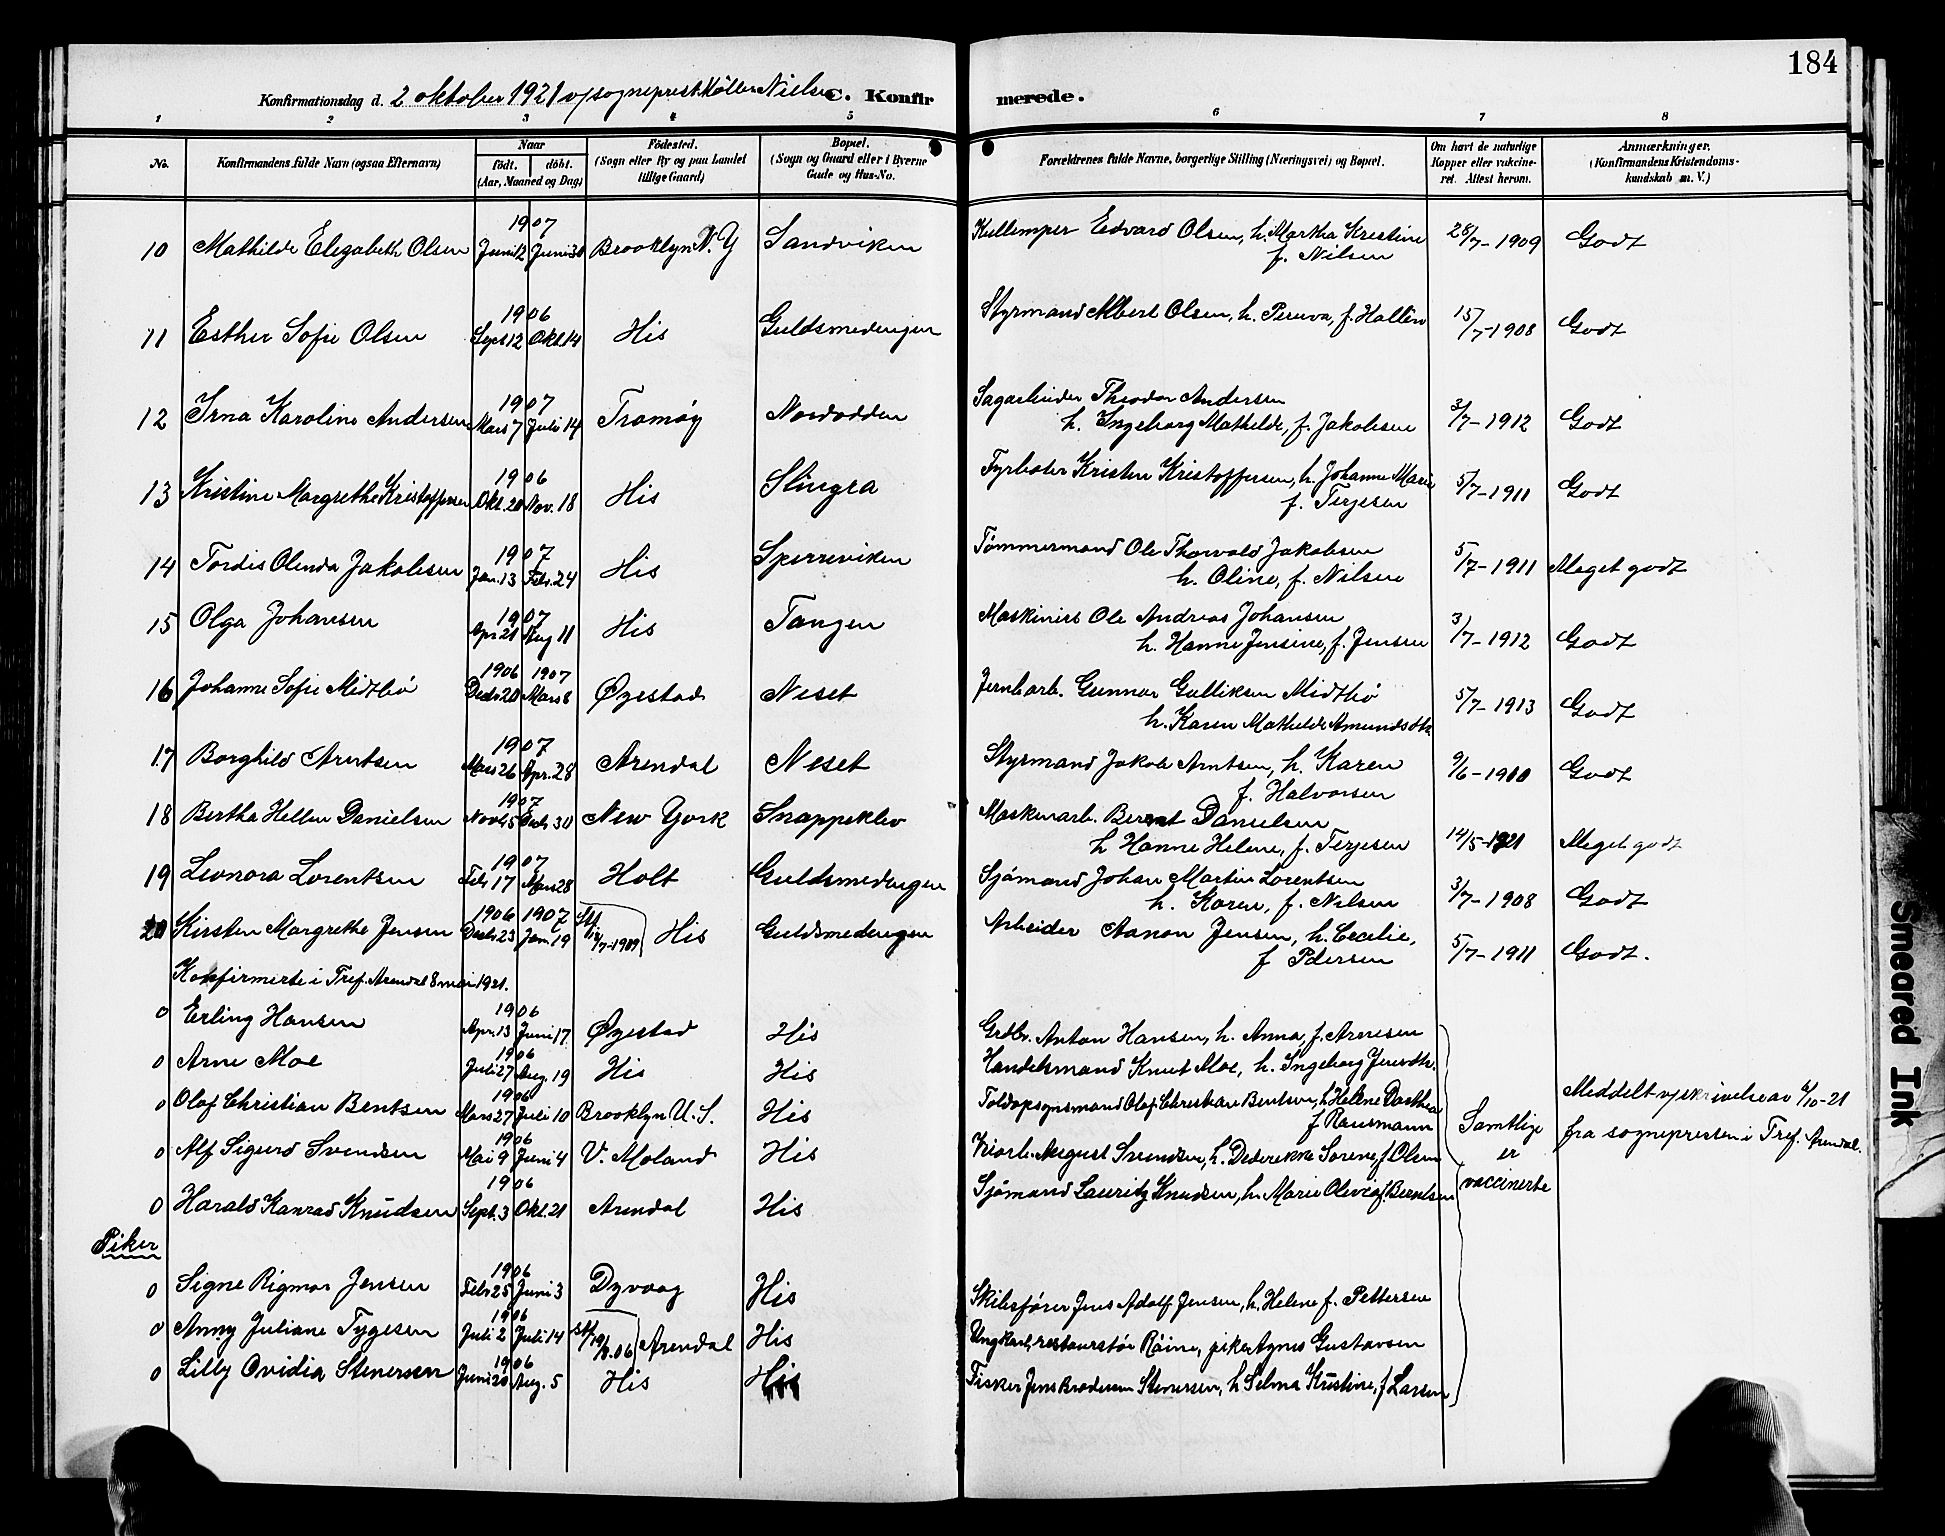 184
Konfirmationsdag d. 2 oktober 1921 v/ sogneprest Møller Nielsen C. Konfirmerede.
1 2 3 4 5 6 7 8
No. Konfirmandens fulde Navn (ogsaa Efternavn) Naar født. døbt. (Aar, Maaned og Dag) Fødested. (Sogn eller By og paa Landet tillige Gaard) Bopæl. (Sogn og Gaard eller i Byerne Gade og Hus-No. Forældrenes fulde Navne, borgerlige Stilling (Næringsvei) og Bopæl. Om havt de naturlige Kopper eller vakcineret. Attest herom. Anmærkninger. (Konfirmandens Kristendomskundskab m. V.)
10 Mathilde Elizabeth Olsen 1907 Juni 12 Juni 30 Brooklyn N.Y Sandviken Kullemper Edvard Olsen, h. Martha Kristine f. Nilsen 28/7-1909 Godt
11 Esther Sofie Olsen 1906 Sept 12 Okt. 14 His Guldsmedengen Styrmand Albert Olsen, h. Peruva, f. Hallèn 15/7-1908 Godt
12 Irna Karoline Andersen 1907 Mars 7 Juli 14 Tromøy Nordodden Sagarbeider Theodor Andersen h. Ingeborg Mathilde, f. Jakobsen 3/7-1912 Godt
13 Kristine Margrethe Kristoffersen 1906 Okt. 20 Nov. 18 His Slingra Fyrbøter Kristen Kristoffersen, h. Johanne Marie f. Terjesen 5/7-1911 Godt
14 Tordis Olenda Jakobsen 1907 Jan. 13 Febr. 24 His Sperreviken Tømmermand Ole Thorvald Jakobsen h. Oline, f. Nilsen 5/7-1911 Meget godt
15 Olga Johansen 1907 Apr 21 Aug 11 His Tangen Maskinist Ole Andreas Johansen h. Hanne Jensine, f. Jensen 3/7-1912 Godt
16 Johanne Sofie Midtbø 1906 Decbr 20 1907 Mars 8 Øyestad Neset Jernbarb. Gunnar Gulliksen Midtbø h. Karen Mathilde Amundsdtr. 5/7-1913 Godt
17 Borghild Arntsen 1907 Mars 26 Apr. 28 Arendal Neset Styrmand Jakob Arntsen, h. Karen f. Halvorsen 9/6-1910 Godt
18 Bertha Hellen Danielsen 1907 Novbr 5 Decbr 30 New York Snappeklev Maskinarb. Bernt Danielsen h Hanne Helene, f. Terjesen 14/5-1921 Meget godt
19 Leonora Lorentsen 1907 Febr 17 Mars 28 Holt Guldsmedengen Sjømand Johan Martin Lorentsen h. Karen, f. Nilsen 3/7-1908 Godt
20 Kirsten Margrethe Jensen 1906 Decbr 23 1907 Jan. 19 His Guldsmedengen Arbeider Aanon Jensen, h. Cecilie, f Pdersen 5/7-1911 Godt.
Konfirmerte i Tref. Arendal 8 mai 1921.
0 Erling Hansen 1906 Apr. 13 Juni 17 Øyestad His Grdbr. Anton Hansen, h. Anna, f. Arnesen
0 Arne Moe 1906 Juli 27 Aug. 19 His His Handelsmand Knut Moe, h. Ingeborg Jensdtr.
0 Olaf Christian Bentsen 1906 Mars 27 Juli 10 Brooklyn U.S. His Toldopsynsmand Olaf Christian Bentsen, h Helene Dorthea f Rausmann
0 Alf Sigurd Svendsen 1906 Mai 9 Juni 4 V. Moland His August Svendsen, h. Dederikke Sorene, f Olsen
0 Harald Konrad Knudsen 1906 Sept. 3 Okt. 21 Arendal His Sjømand Lauritz Knudsen, h. Marie Olivia f. Berntsen
Samtlige er vaccinerte
Meddelt v/ skrivelse av 6/10-21
fra sognepresten i Tref. Arendal.
Piker
0 Signe Rigmor Jensen 1906 Febr 25 Juni 3 Dyvaag His Skibsfører Jens Adolf Jensen, h. Helene f. Pettersen
0 Anny Juliane Tygesen 1906 Juli 2 Juli 14 Arendal His Ungkarl, restauratør Råine, pike Agnes Gustavsen
0 Lilly Ovidia Stenersen 1906 Juni 20 Aug. 5 His His Fisker Jens Brodersen Stenersen, h Selma Kristine, f Larsen
Smeared Ink